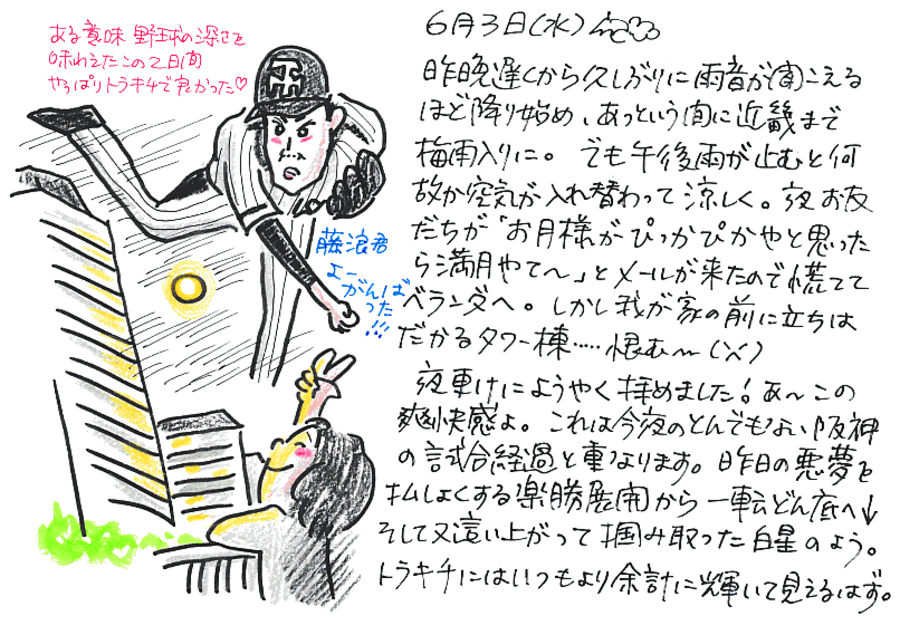 ある意味 野球の深さを
味わえたこの2日間
やっぱりトラキチで良かった♡
藤浪君
よー
がんば
った
!!!
6月3日(水)
昨晩遅くから久しぶりに雨音が聞こえる
ほど降り始め、あっという間に近畿まで
梅雨入りに。でも午後雨が止むと何
故か空気が入れ替わって涼しく。夜お友
だちが「お月様がぴっかぴかやと思った
ら満月やて〜」とメールが来たので慌てて
ベランダへ。しかし我が家の前に立ちは
だかるタワー棟……恨む〜(X)
夜更けにようやく拝めました!あ〜この
爽快感よ。これは今夜のとんでもない阪神
の試合経過と重なります。昨日の悪夢を
払しょくする楽勝展開から一転どん底へ↓
そして又這い上がって掴み取った白星のよう。
トラキチにはいつもより余計に輝いて見えるはず。